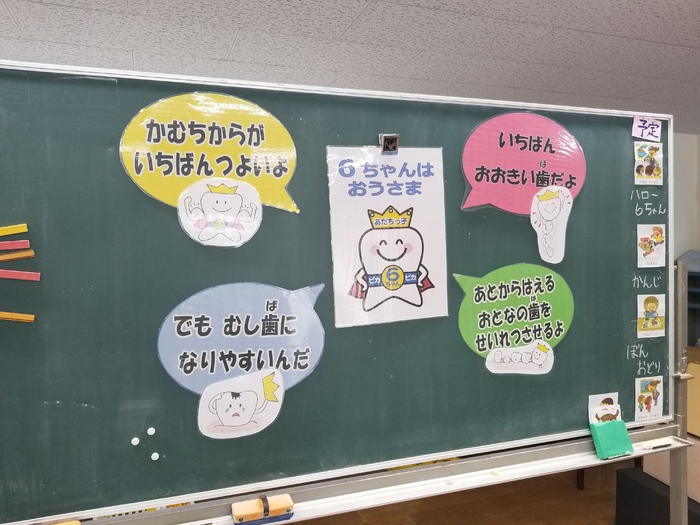 かむちからが
いちばんつよいよ
6ちゃんは
おうさま
あだちっ子
ピカ 6 ピカ
ちゃん
いちばん
おおきい歯だよ
は
でも むし歯に
ば
なりやすいんだ
あとからはえる
おとなの歯を
は
せいれつさせるよ
予定
ハロー
6ちゃん
かんじ
ぼん
おどり